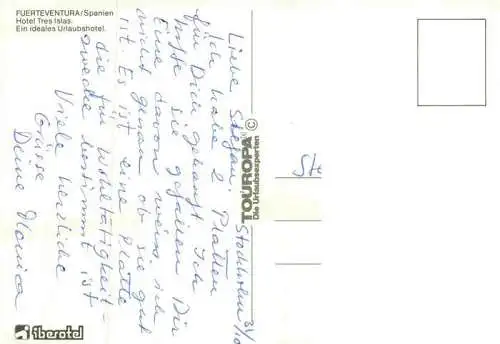 FUERTEVENTURA/Spanien
Hotel Tres Islas.
Ein ideales Urlaubshotel.
Stockholm 31/10
Liebe Stefan.
Ich habe 2 Platten
für Dich gekauft. Ich
hoffe sie gefallen Dir
Eine davon weiss ich
nicht genau ob sie gut
ist. Es ist eine Platte
die für Wohltätigkeit-
zwecke bestimmt ist
Viele herzliche
Grüsse
Deine Monica
TOUROPA ©
Die Urlaubsexperten
iberotel